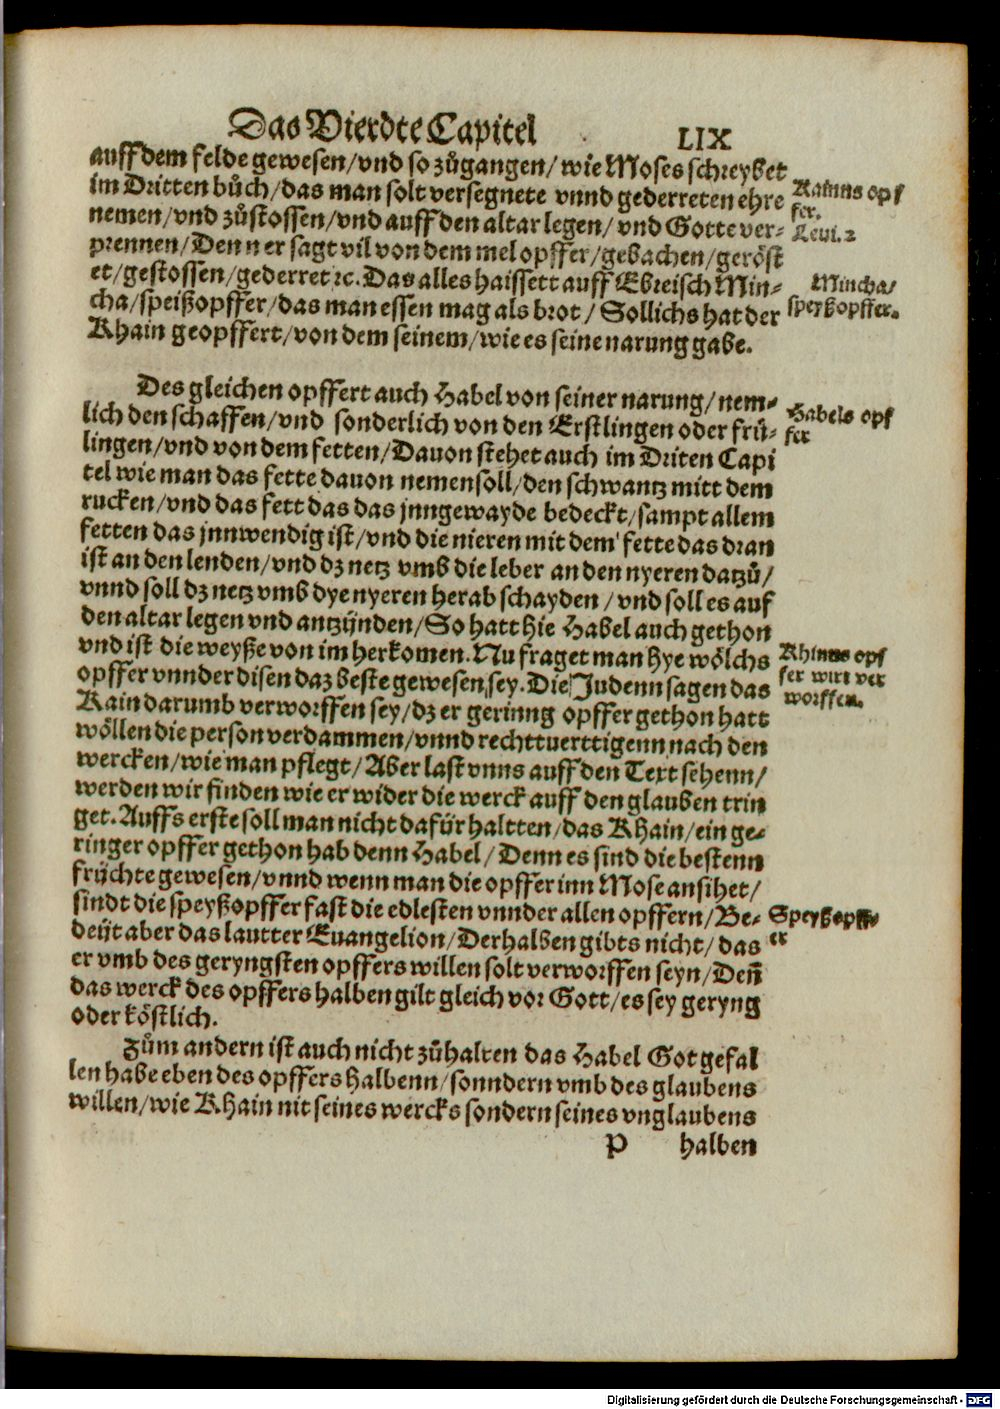 Das Vierdte Capitel LIX
auff dem felde gewesen/vnd so zůgangen/wie Moses schreybet
im Dritten bůch/das man solt versegnete vnnd gederreten ehre
nemen/vnd zůstossen/vnd auff den altar legen/vnd Gotte ver⸗
prennen/Denn er sagt vil von dem mel opffer/gebachen/geröst
et/gestossen/gederret ꝛc. Das alles haissett auff Ebreisch Min⸗
cha/speißopffer/das man essen mag als brot/Sollichs hat der
Khain geopffert/von dem seinem/wie es seine narung gabe.
Kainns opf
fer.
Leui. 2
Mincha/
speyßopffer.
Des gleichen opffert auch Habel von seiner narung/nem⸗
lich den schaffen/vnd sonderlich von den Erstlingen oder frü⸗
lingen/vnd von dem fetten/Dauon stehet auch im Driten Capi
tel wie man das fette dauon nemen soll/den schwantz mitt dem
rucken/vnd das fett das das jnngewayde bedeckt/sampt allem
fetten das jnnwendig ist/vnd die nieren mit dem fette das dran
ist an den lenden/vnd dz netz vmb die leber an den nyeren datzů/
vnnd soll dz netz vmb dye nyeren herab schayden/vnd soll es auf
den altar legen vnd antzünden/So hatt hie Habel auch gethon
vnd ist die weyße von im herkomen. Nu fraget man hye wölchs
opffer vnnder disen daz beste gewesen sey. Die Judenn sagen das
Kain darumb verworffen sey/dz er gerinng opffer gethon hatt
wöllen die person verdammen/vnnd rechttuerttigenn nach den
wercken/wie man pflegt/Aber last vnns auff den Text sehenn/
werden wir finden wie er wider die werck auff den glauben trin
get. Auffs erste soll man nicht dafür haltten/das Khain/ein ge⸗
ringer opffer gethon hab denn Habel/Denn es sind die bestenn
früchte gewesen/vnnd wenn man die opffer inn Mose ansihet/
sindt die speyßopffer fast die edlesten vnnder allen opffern/Be⸗
deüt aber das lautter Euangelion/Derhalben gibts nicht/das
er vmb des geryngsten opffers willen solt verworffen seyn/Deñ
das werck des opffers halben gilt gleich vor Gott/es sey geryng
oder köstlich.
Habels opf
fer
Khinns opf
fer wirt ver
worffen.
Speyßopff⸗
er
Zům andern ist auch nicht zůhalten das Habel Got gefal
len habe eben des opffers halbenn/sonndern vmb des glaubens
willen/wie Khain nit seines wercks sondern seines vnglaubens
P halben
Digitalisierung gefördert durch die Deutsche Forschungsgemeinschaft - DFG